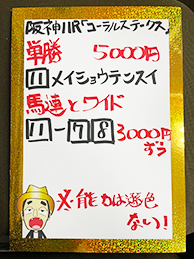 阪神11R「コーラルステークス」
単勝 5000円
11 メイショウテンスイ
馬連とワイド
11-7 8 3000円
ずつ
才能かは遜色
ない!